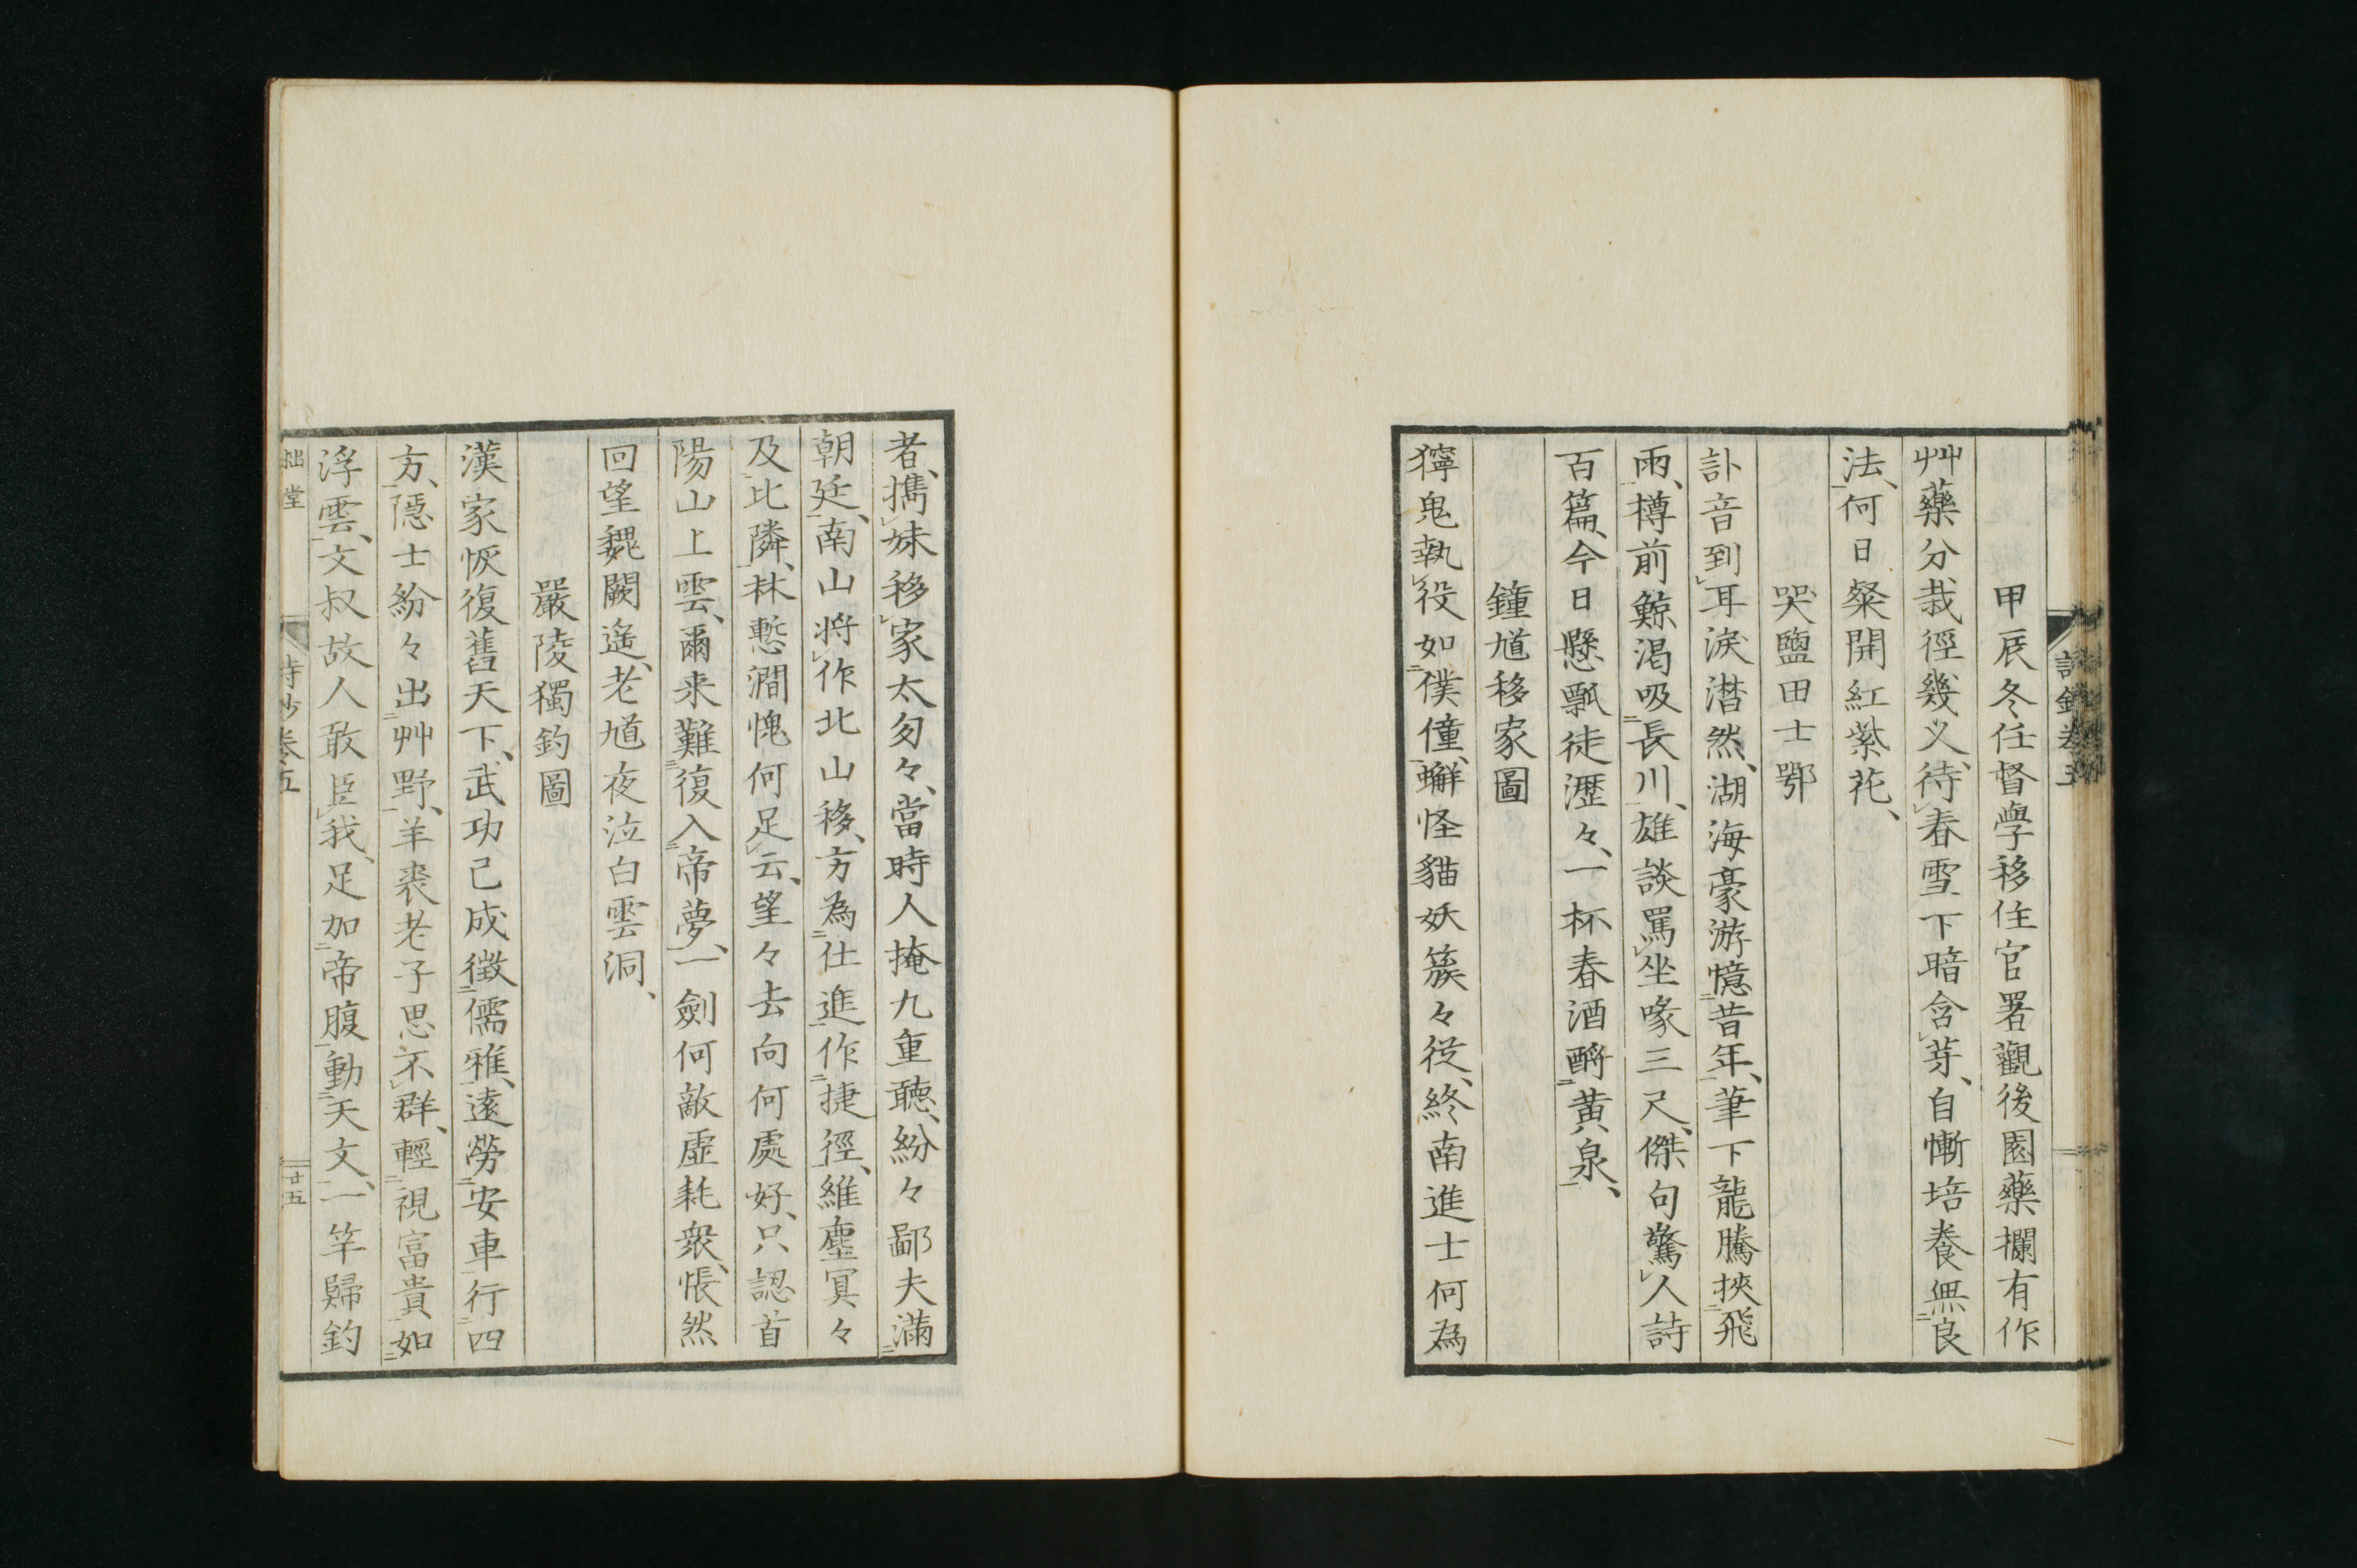 甲辰冬任督學移住官署觀後園藥欄有作
艸藥分栽徑幾义、待春雪下暗含芽、自慚培養無良
法、何日粲開紅紫花、
哭鹽田士鄂
訃音到耳淚潸然、湖海豪游憶昔年、筆下龍騰挾飛
雨、樽前鯨渴吸長川、雄談罵坐喙三尺、傑句驚人詩
百篇、今日懸瓢徒瀝々、一杯春酒酹黄泉、
鐘馗移家圖
獰鬼執役如僕僮、蠏怪貓妖簇々從、終南進士何為
者、攜妹移家太匆々、當時人掩九重聽、紛々鄙夫滿
朝廷、南山将作北山移、方為仕進作捷徑、維塵冥々
及比隣、林慙澗愧何足云、望々去向何處好、只認首
陽山上雲、爾来難復入帝夢、一劍何敵虛耗衆、悵然
回望魏闕遙、老馗夜泣白雲洞、
嚴陵獨釣圖
漢家恢復舊天下、武功已成徵儒雅、遠勞安車行四
方、隱士紛々出艸野、羊裘老子思不群、輕視富貴如
浮雲、文叔故人敢臣我、足加帝腹動天文、一竿歸釣
拙堂
詩鈔卷五
廿五